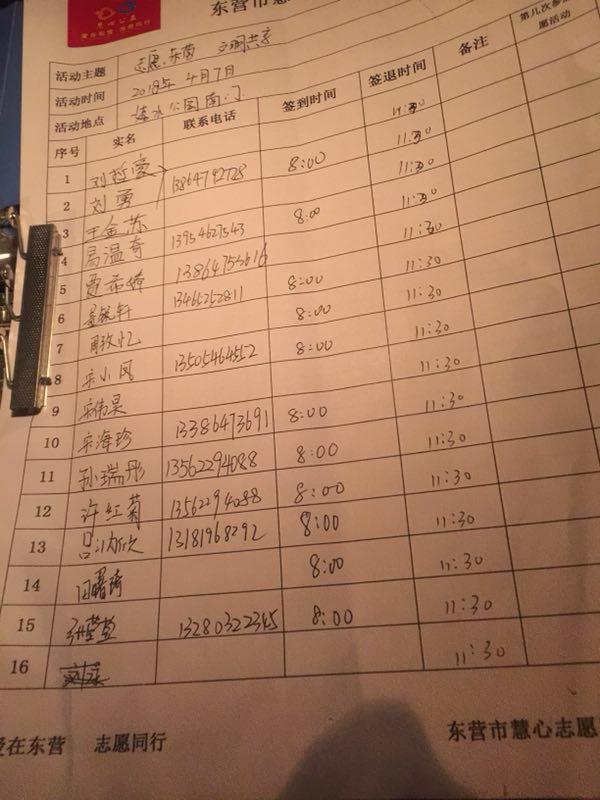 慧心公益
爱在东营 志愿同行
东营市慧心志愿
活动主题 志愿东营 文明共享
活动时间 2018年4月7日
活动地点 清水公园南门
序号 实名 联系电话 签到时间 签退时间 备注 第几次参加志愿活动
11:30
1 刘哲豪 13864792728 8:00 11:30
2 刘勇 11:30
3 王金苏 8:00 11:30
4 周温奇 13954627543 11:30
5 贾希婷 13864753616 11:30
6 轩 13465252811 8:00 11:30
7 周孜忆 8:00 11:30
8 宋小凤 13505464552 8:00 11:30
9 宋伟昊 11:30
10 宋海珍 13386473691 8:00 11:30
11 孙瑞彤 13562294088 8:00 11:30
12 许红菊 13562294088 8:00 11:30
13 吕沩欣 13181968292 8:00 11:30
14 田曙琦 8:00 11:30
15 13280322345 8:00 11:30
16 11:30
爱在东营 志愿同行
东营市慧心志愿